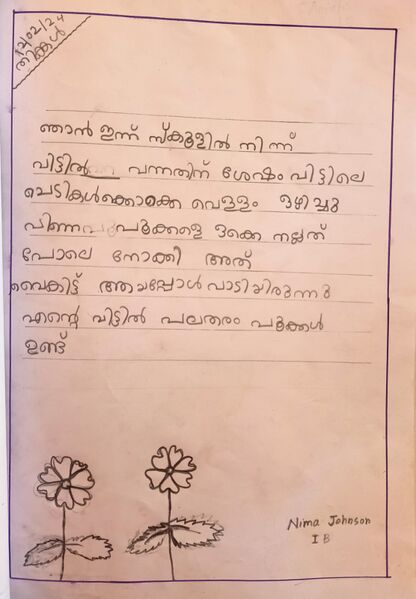 12/02/24
തിങ്കൾ
ഞാൻ ഇന്ന് സ്കൂളിൽ നിന്ന്
വിട്ടിൽ വന്നതിന് ശേഷം വിട്ടിലെ
ചെടികൾക്കൊക്കെ വെള്ളം ഒഴിച്ചു
പിന്നെ പൂക്കളെ ഒക്കെ നല്ലത്
പോലെ നോക്കി അത്
വൈകിട്ട് ആയപ്പോൾ വാടിയിരുന്നു
എന്റെ വിട്ടിൽ പലതരം പൂക്കൾ
ഉണ്ട്
Nima Johnson
I B